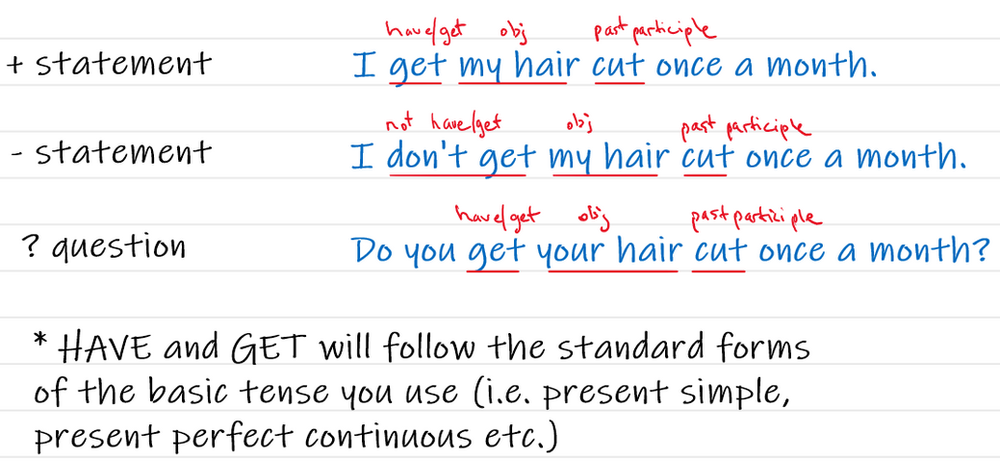 have/get obj past participle
+ statement I get my hair cut once a month.
not have/get obj past participle
- statement I don't get my hair cut once a month.
have/get obj past participle
? question Do you get your hair cut once a month?
* HAVE and GET will follow the standard forms
of the basic tense you use (i.e. present simple,
present perfect continuous etc.)